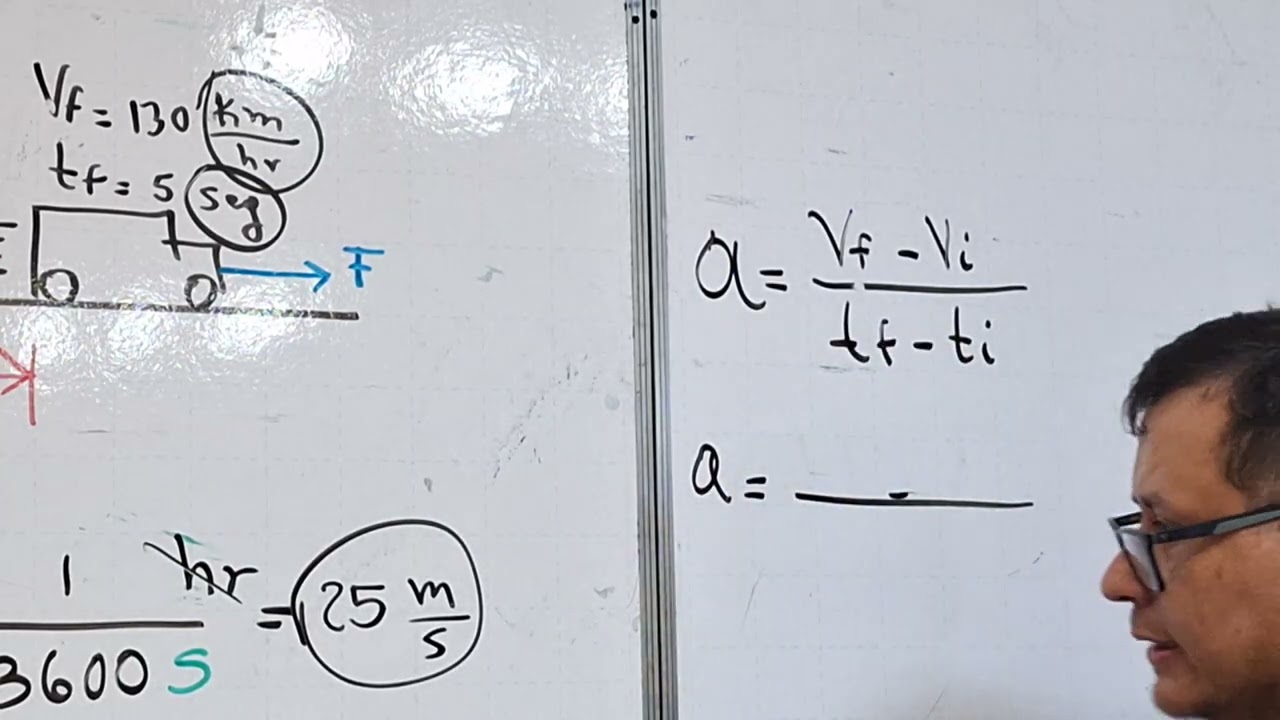 Vf = 130 Km/hr
tf = 5 seg
F
1 hr
3600 s
= 25 m/s
a = Vf - Vi
tf - ti
a =